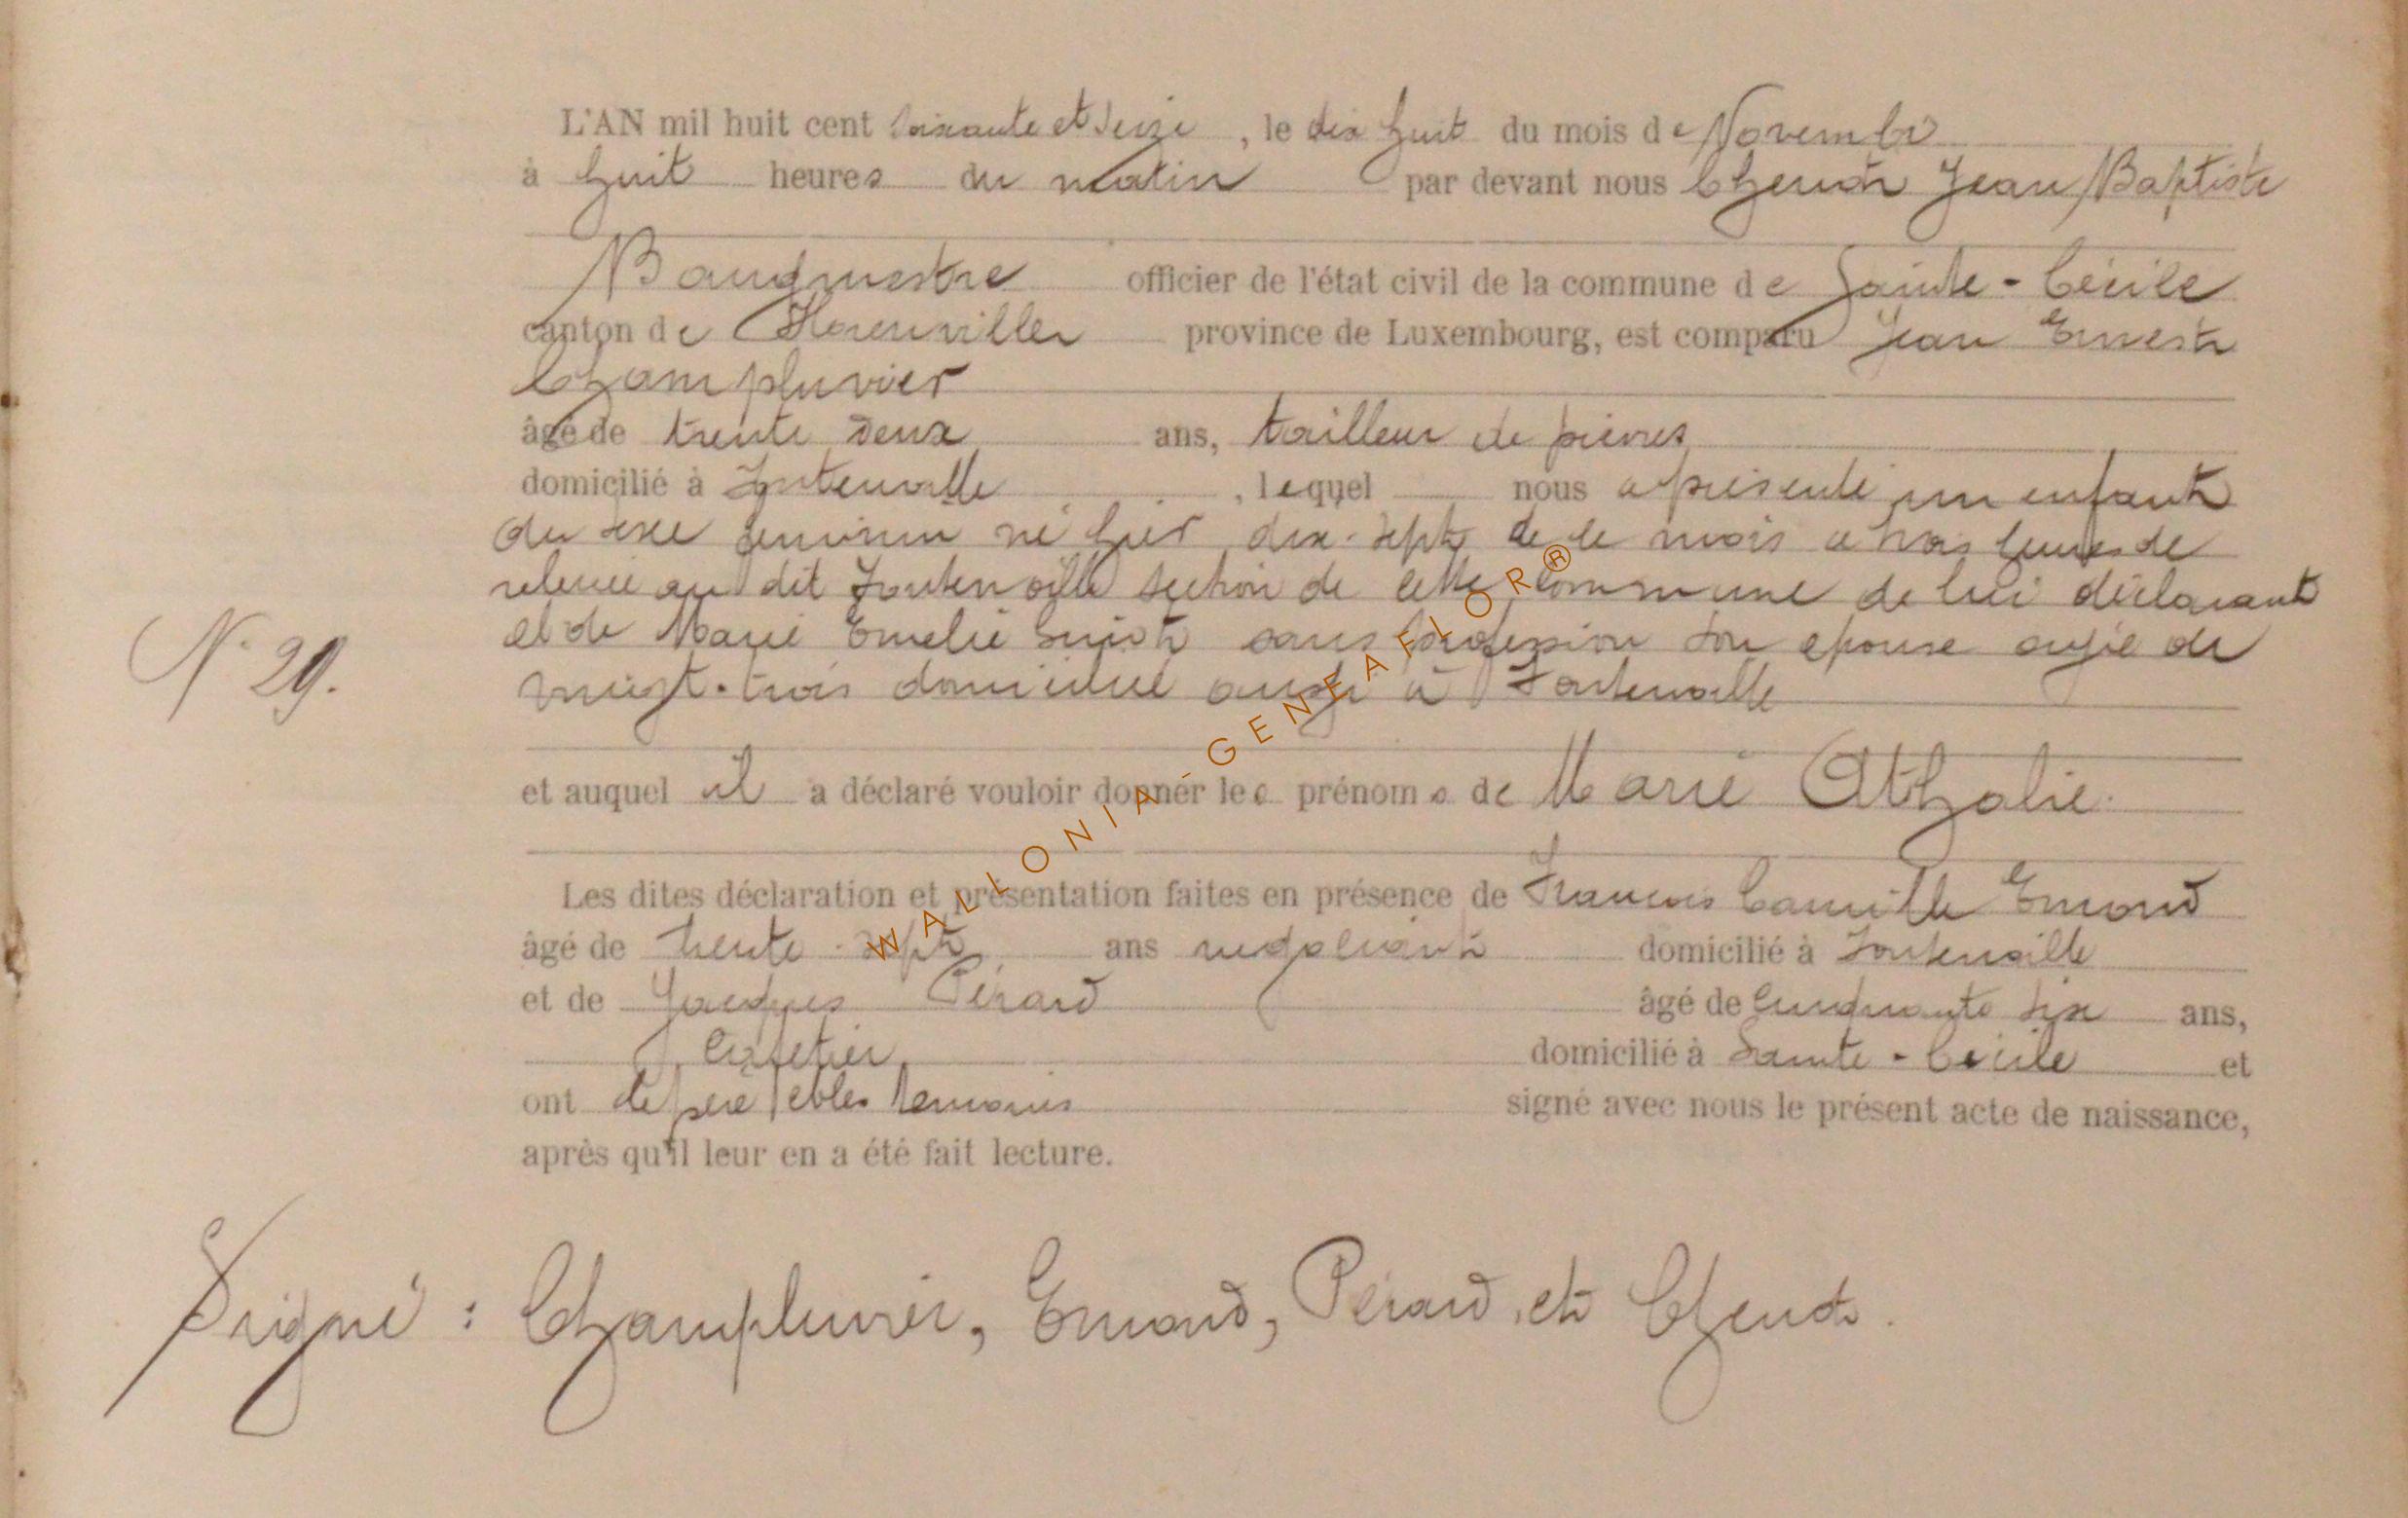 L'AN mil huit cent soixante et seize, le dix huit du mois de Novembre
à huit heures du matin par devant nous Chenot Jean Baptiste
Bourgmestre officier de l'état civil de la commune de Sainte-Cécile
canton de Florenville province de Luxembourg, est comparu Jean Ernest
Champluvier
âgé de trente deux ans, tailleur de pierres
domicilié à Fontenoille, lequel nous a présenté un enfant
du sexe féminin né hier dix-sept de ce mois à trois heures de
relevée au dit Fontenoille section de cette commune de lui déclarant
N° 29.
et de Marie Emelie sans profession son epouse agée de
vingt-trois domicilié aussi à Fontenoille
et auquel il a déclaré vouloir donner les prénoms de Marie Athalie.
Les dites déclaration et présentation faites en présence de Francois Camille Emond
âgé de trente-sept ans negociant domicilié à Fontenoille
et de Jacques Pérard âgé de cinquante six ans,
Cafetier domicilié à Sainte-Cécile et
ont le père et les temoins signé avec nous le présent acte de naissance,
après qu'il leur en a été fait lecture.
Signé : Champluvier, Emond, Pérard, et Chenot.
WALLONIA-GENEAFLOR®